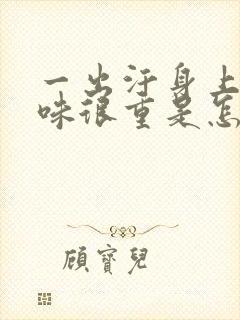 一出汗身上
味很重是怎
顾寶兒